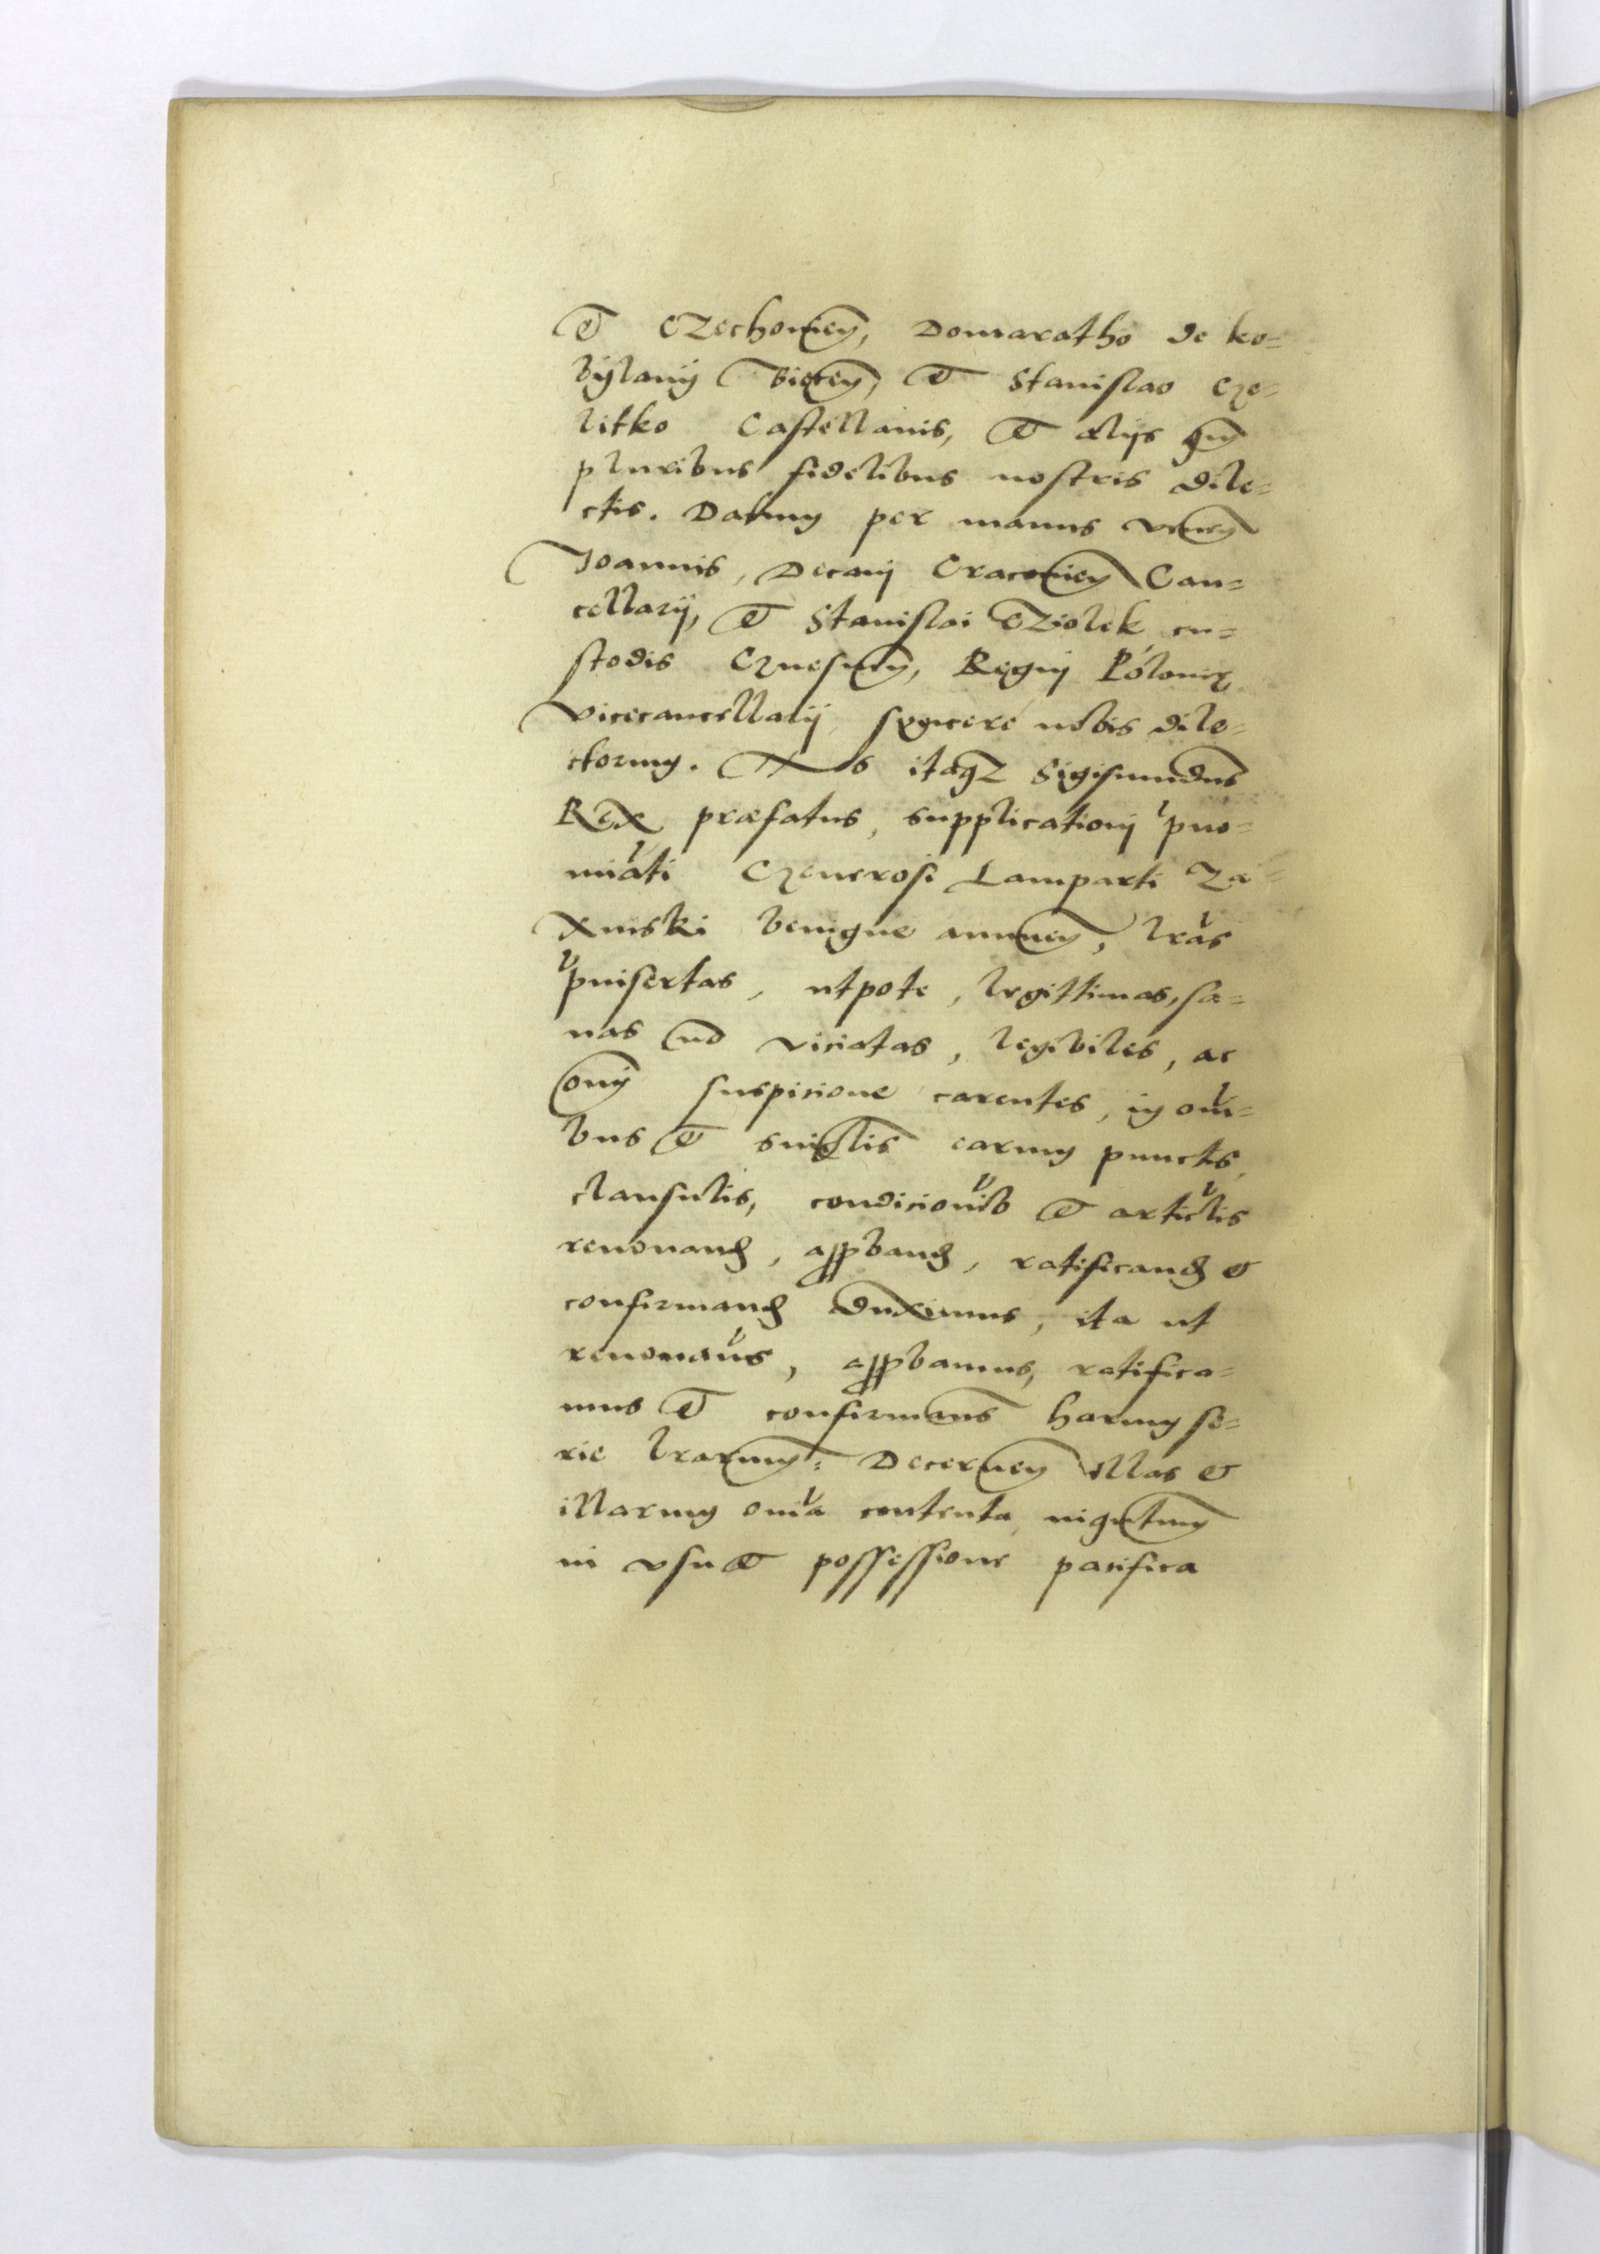 et Czechovien, Domaratho de Ko=
bylany Biecen, et Stanislao Cze=
litko Castellanis, et alijs qm
pluribus fidelibus nostris dile=
ctis. Datum per manus Ven
Joannis, Decani Cracovien Can=
cellarij, et Stanislai Cziolek cu=
stodis Gnesnen, Regni Polonię
Vicecancellarij syncere nobis dile=
ctorum. Nos itaqz Sigismundus
Rex præfatus, supplicationi pno=
miati Generosi Lamparti Za=
benigne annuen, lras
pinsertas, utpote, legittimas, sa=
nas no viciatas, legibiles, ac
omi suspicione carentes, in omi=
bus et singlis earum punctis,
clausulis, condicionib et articlis
renovand, approband, ratificand et
confirmand duximus, ita ut
renovaus, approbamus, ratifica=
mus et confirmams harum se=
rie lrarum: Decernen illas et
illarum omia contenta
in usu et possessione pacifica